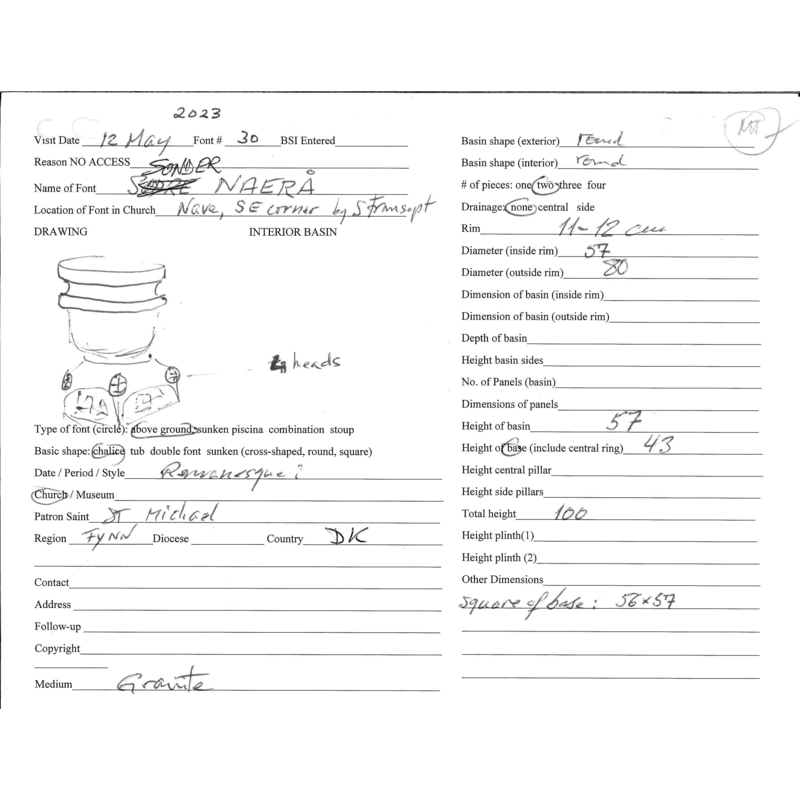 2023
Visit Date 12 May Font # 30 BSI Entered
Reason NO ACCESS SONDER
Name of Font NAERÅ
Location of Font in Church Nave, SE corner by S Transept
DRAWING INTERIOR BASIN
4 heads
Type of font (circle): above ground sunken piscina combination stoup
Basic shape: chalice tub double font sunken (cross-shaped, round, square)
Date / Period / Style Romanesque?
Church / Museum
Patron Saint ST Michael
Region FYNN Diocese Country DK
Contact
Address
Follow-up
Copyright
Medium Granite
Basin shape (exterior) round
Basin shape (interior) round
# of pieces: one two three four
Drainage: none central side
Rim 11-12 cm
Diameter (inside rim) 57
Diameter (outside rim) 80
Dimension of basin (inside rim)
Dimension of basin (outside rim)
Depth of basin
Height basin sides
No. of Panels (basin)
Dimensions of panels
Height of basin 57
Height of base (include central ring) 43
Height central pillar
Height side pillars
Total height 100
Height plinth(1)
Height plinth (2)
Other Dimensions
square of base: 56x57